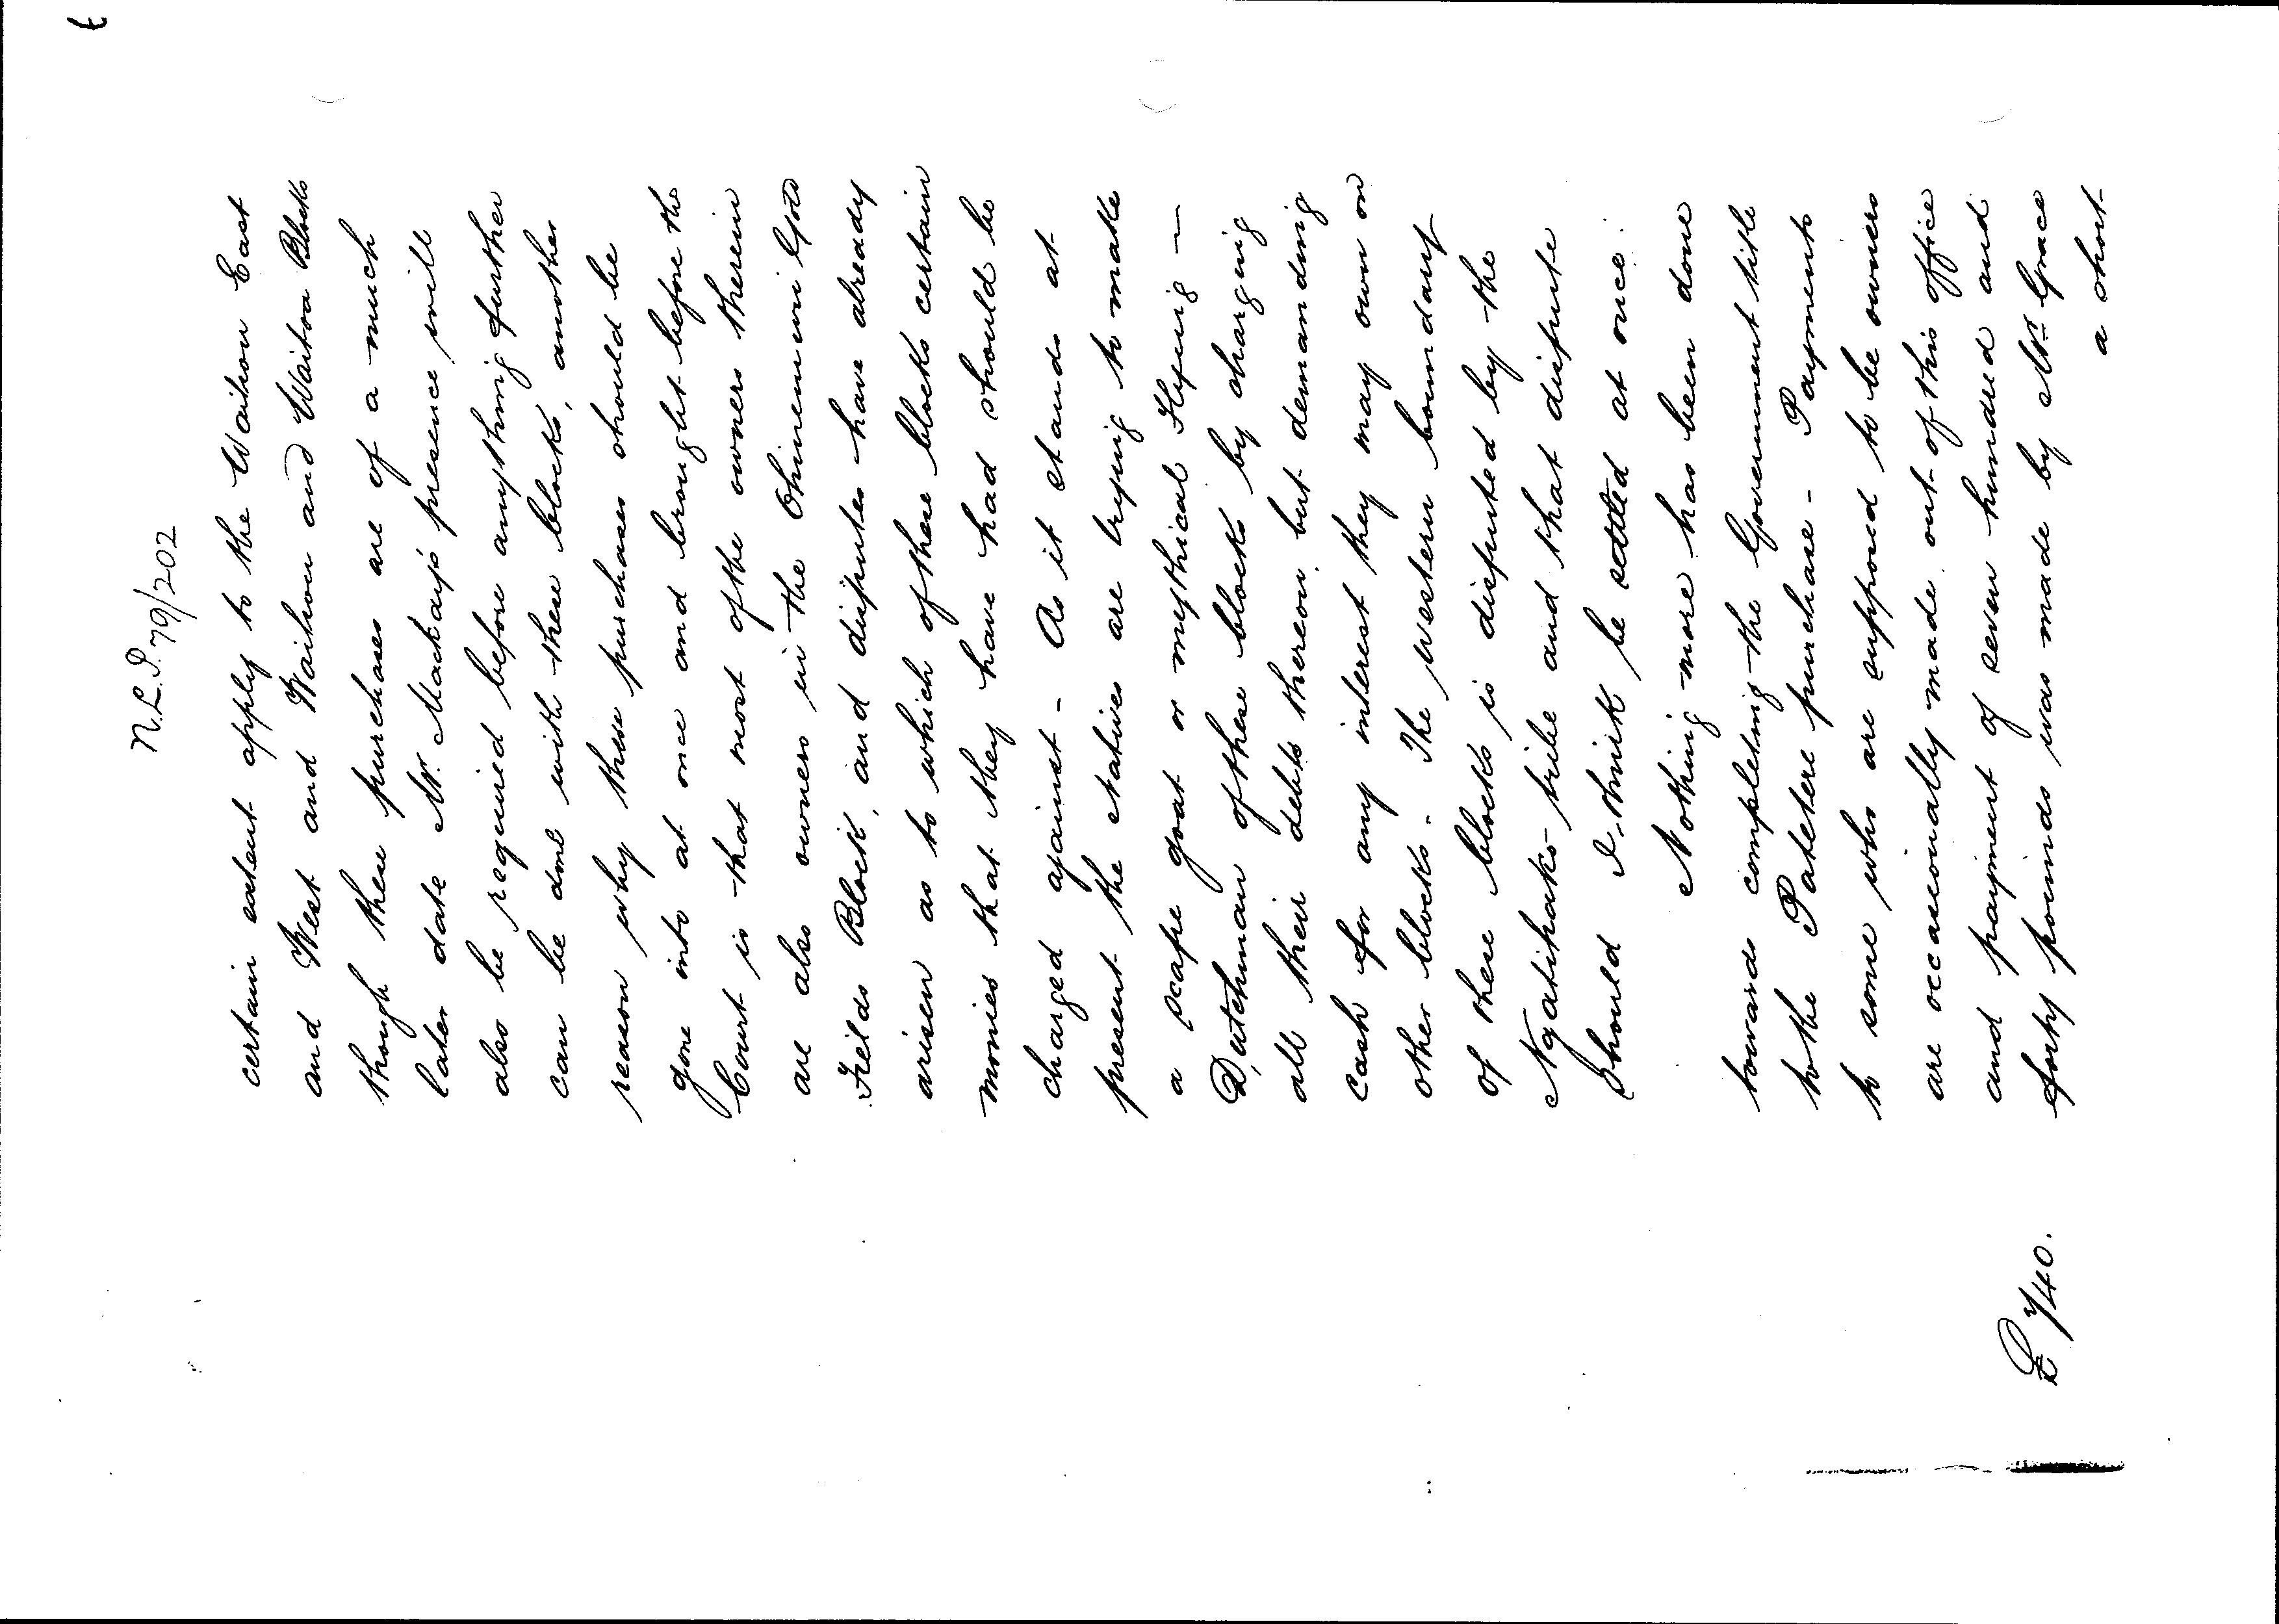 N.L.P. 79/202
certain extent apply to the Waihou East
and West and Waihou and Waitoa Blocks
though these purchases are of a much
later date Mr. Mackay's presence will
also be required before anything further
can be done with these blocks, another
reason why these purchases should be
gone into at once and brought before the
Court is that most of the owners therein
are also owners in the Ohinemuri Gold
Fields Block, and disputes have already
arisen as to which of these blocks certain
monies that they have had should be
charged against - As it stands at
present the natives are trying to make
a scape goat or mythical Flying -
Dutchman of these blocks by charging
all their debts thereon but demanding
cash for any interest they may own on
other blocks - The western boundary
of these blocks is disputed by the
Ngatihako tribe and that dispute
should I think be settled at once.
Nothing more has been done
towards completing the Government title
to the Patetere purchase - Payments
to some who are supposed to be owners
are occasionally made out of this office
and payment of seven hundred and
£740. forty pounds was made by Mr Grace
a short